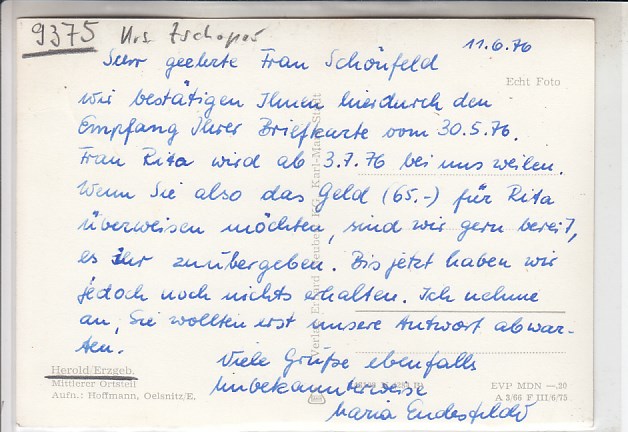 9375 Krs. Zschopau
11.6.76
Sehr geehrte Frau Schönfeld
Echt Foto
wir bestätigen Ihnen hierdurch den
Empfang Ihrer Briefkarte vom 30.5.76.
Frau Rita wird ab 3.7.76 bei uns weilen.
Wenn Sie also das Geld (65.-) für Rita
überweisen möchten, sind wir gern bereit,
es ihr zu übergeben. Bis jetzt haben wir
jedoch noch nichts erhalten. Ich nehme
an, Sie wollten erst unsere Antwort abwar-
ten.
Viele Grüße ebenfalls
Unbekannterweise
Maria Endesfelder
Herold/Erzgeb.
Mittlerer Ortsteil
Aufn.: Hoffmann, Oelsnitz/E.
EVP MDN —.20
A 3/66 F III/6/75
Verlag Erhard Neubert KG, Karl-Marx-Stadt